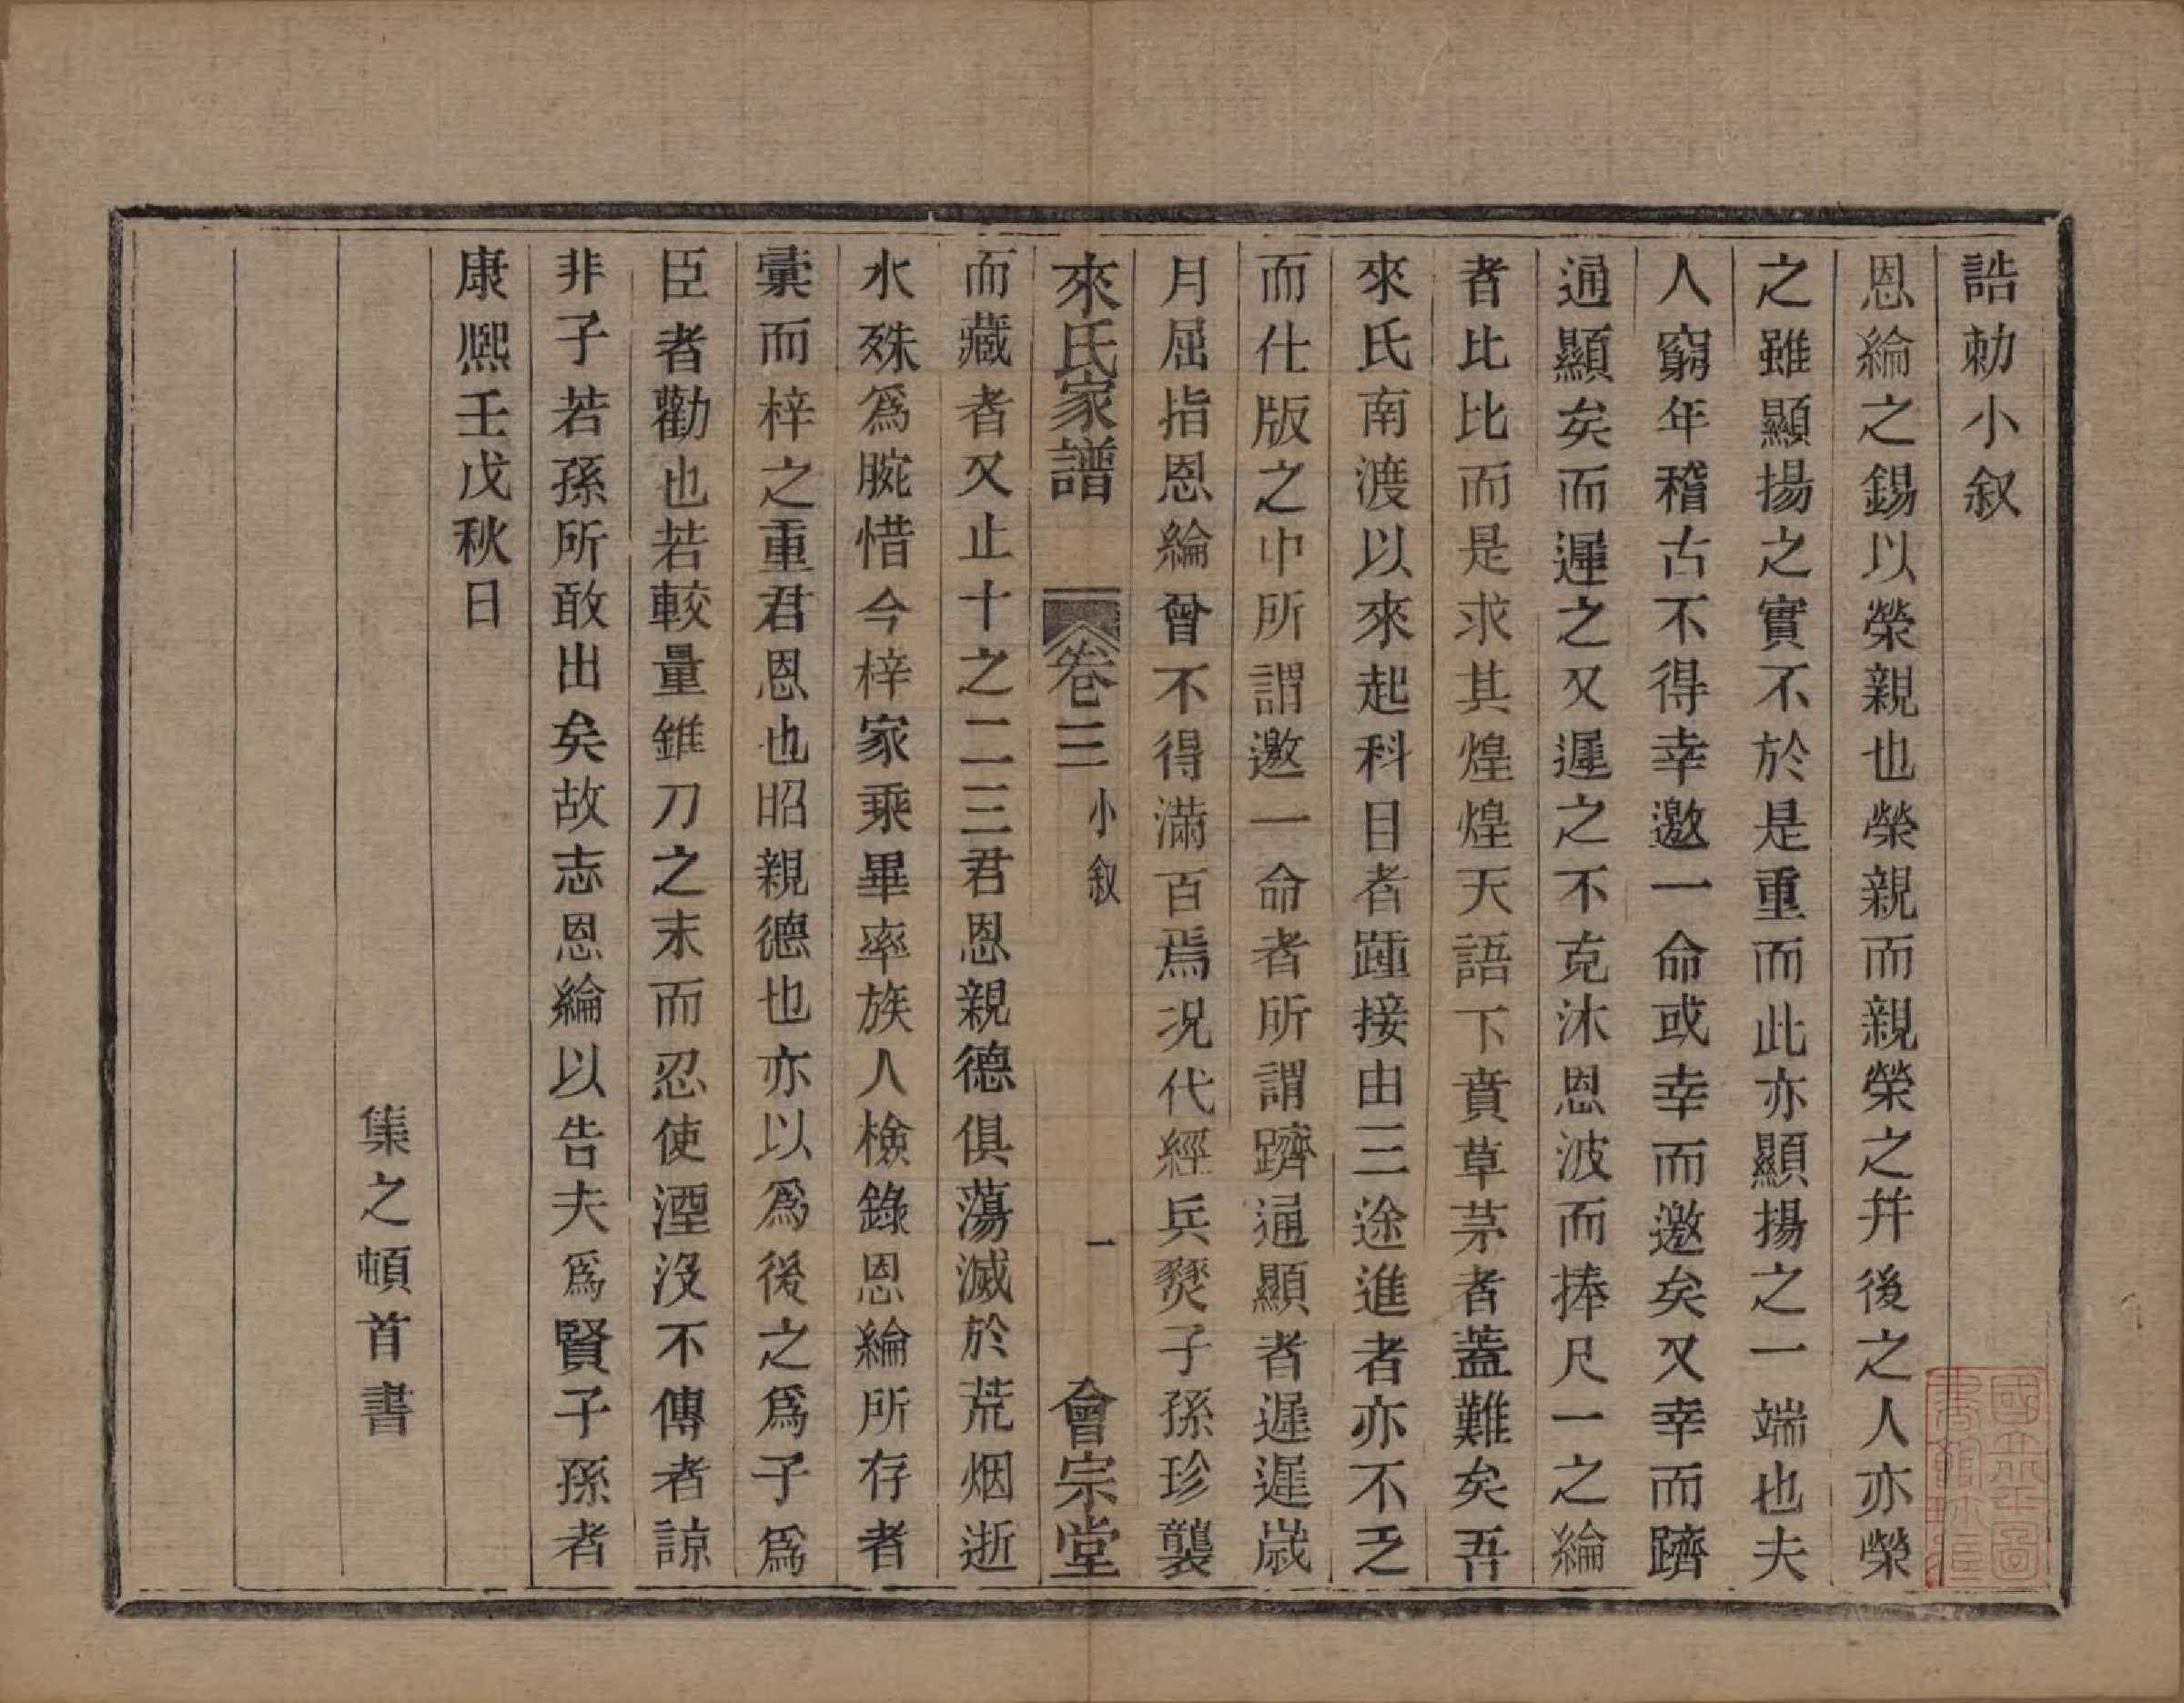 誥勅小叙
恩綸之錫以榮親也榮親而親榮之幷後之人亦榮
之雖顯揚之實不於是重而此亦顯揚之一端也夫
人窮年稽古不得幸邀一命或幸而邀矣又幸而躋
通顯矣而遲之又遲之不克沐恩波而捧尺一之綸
者比比而是求其煌煌天語下賁草茅者蓋難矣吾
來氏南渡以來起科目者踵接由三途進者亦不乏
而仕版之中所謂邀一命者所謂躋通顯者遲遲歲
月屈指恩綸曾不得滿百焉况代經兵燹子孫珍襲
來氏家譜 卷三 小叙 一 會宗堂
而藏者又止十之二三君恩親德俱蕩滅於荒烟逝
水殊爲腕惜今梓家乘畢率族人檢錄恩綸所存者
彙而梓之重君恩也昭親德也亦以爲後之爲子爲
臣者勸也若較量錐刀之末而忍使湮沒不傳者諒
非子若孫所敢出矣故志恩綸以告夫爲賢子孫者
康熙壬戊秋日
集之頓首書